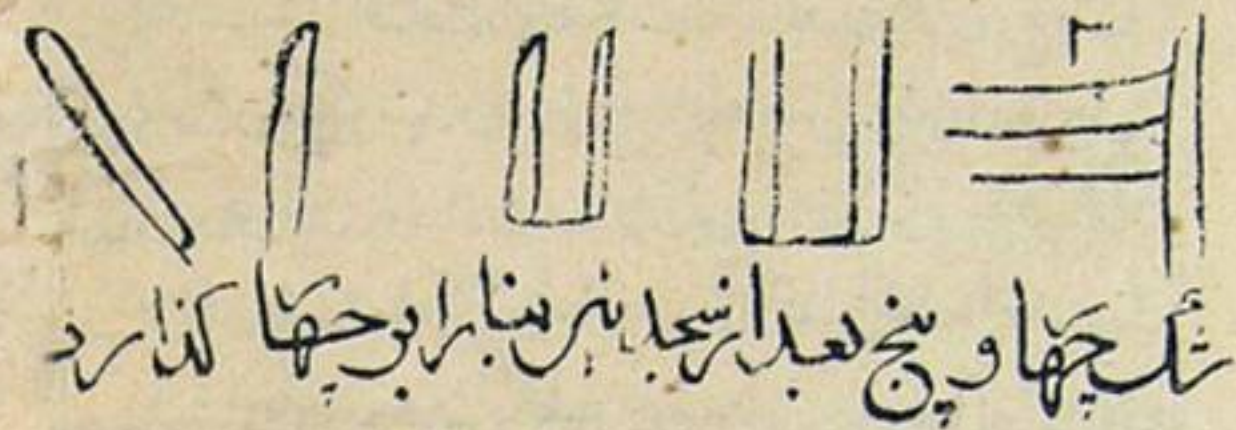 شک چهار و پنج بعد از سجدتین بنا را بر چهار گذارد